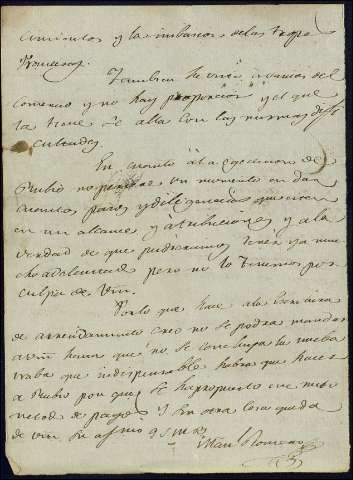 y las imbasiones de las tropas
francesas.
Tambien he visto a varios del
comercio y no hay proporcion y el que
la tiene se alla con las mismas difi
cultades
En cuanto á la egecucion de
Rubio no pierdo un momento en dar
cuantos pasos y diligencias que esten
en mi alcance y atribuciones y a la
verdad de que pudieramos tener ya mu
cho adelantado pero no lo tenemos por
culpa de Vm.
Por lo que hace a la Escritura
de arrendamiento creo no se podra mandar
a Vm hasta que no se concluya la nueba
traba que indispensable habra que hacer
a Rubio por que se ha propuesto ese nuebo
metodo de pago. Y sin otra cosa queda
de Vm su af mo q s m b
Man l Romero